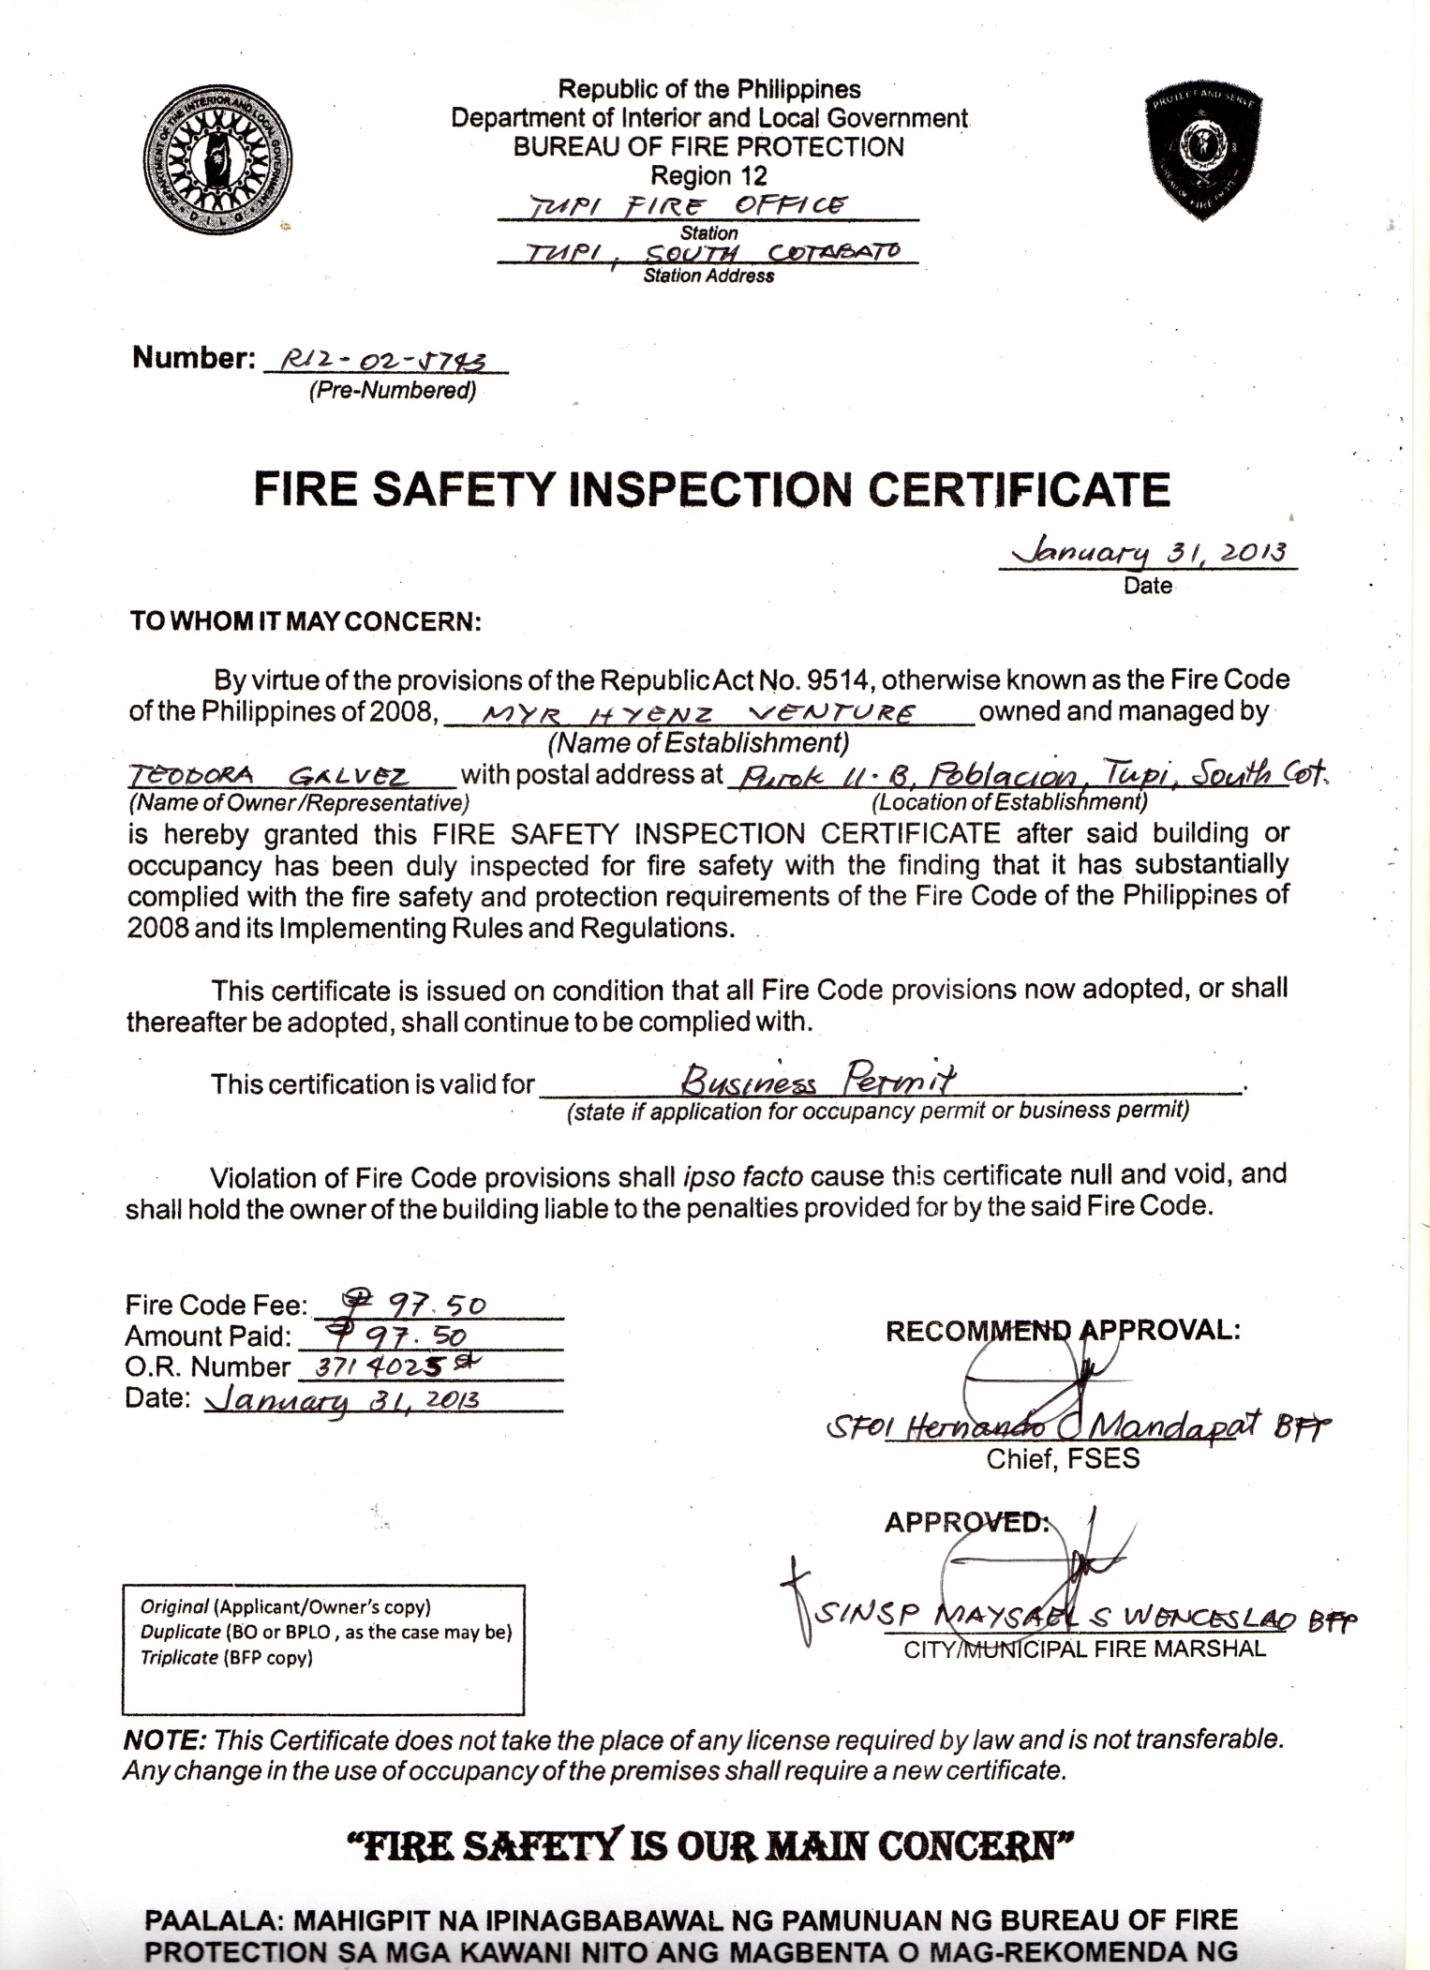 Republic of the Philippines
Department of Interior and Local Government
BUREAU OF FIRE PROTECTION
Region 12
TUPI FIRE OFFICE
Station
TUPI, SOUTH COTABATO
Station Address
DEPARTMENT OF THE INTERIOR AND LOCAL GOVERNMENT
DILG
PROTECT AND SERVE
Number: R12-02-5743
(Pre-Numbered)
FIRE SAFETY INSPECTION CERTIFICATE
January 31, 2013
Date
TO WHOM IT MAY CONCERN:
By virtue of the provisions of the Republic Act No. 9514, otherwise known as the Fire Code
of the Philippines of 2008, MYR HYENZ VENTURE owned and managed by
(Name of Establishment)
TEODORA GALVEZ with postal address at Purok 11-B, Poblacion, Tupi, South Cot.
(Name of Owner/Representative) (Location of Establishment)
is hereby granted this FIRE SAFETY INSPECTION CERTIFICATE after said building or
occupancy has been duly inspected for fire safety with the finding that it has substantially
complied with the fire safety and protection requirements of the Fire Code of the Philippines of
2008 and its Implementing Rules and Regulations.
This certificate is issued on condition that all Fire Code provisions now adopted, or shall
thereafter be adopted, shall continue to be complied with.
This certification is valid for Business Permit.
(state if application for occupancy permit or business permit)
Violation of Fire Code provisions shall ipso facto cause this certificate null and void, and
shall hold the owner of the building liable to the penalties provided for by the said Fire Code.
Fire Code Fee: ₱ 97.50
Amount Paid: ₱ 97.50
O.R. Number 3714025
Date: January 31, 2013
RECOMMEND APPROVAL:
SFO1 Hernando C Mandapat BFP
Chief, FSES
APPROVED:
SINSP MAYSAEL S WENCESLAO BFP
CITY/MUNICIPAL FIRE MARSHAL
Original (Applicant/Owner's copy)
Duplicate (BO or BPLO , as the case may be)
Triplicate (BFP copy)
NOTE: This Certificate does not take the place of any license required by law and is not transferable.
Any change in the use of occupancy of the premises shall require a new certificate.
"FIRE SAFETY IS OUR MAIN CONCERN"
PAALALA: MAHIGPIT NA IPINAGBABAWAL NG PAMUNUAN NG BUREAU OF FIRE
PROTECTION SA MGA KAWANI NITO ANG MAGBENTA O MAG-REKOMENDA NG